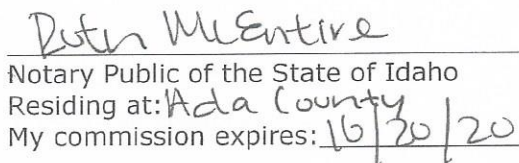 Ruth McEntire
Notary Public of the State of Idaho
Residing at: Ada County
My commission expires: 10/20/20